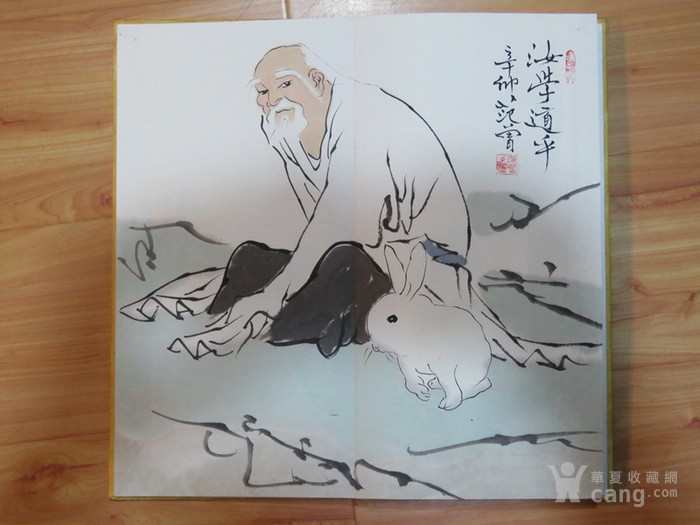 汝学道乎
辛卯 范曾
華夏收藏網
cang.com